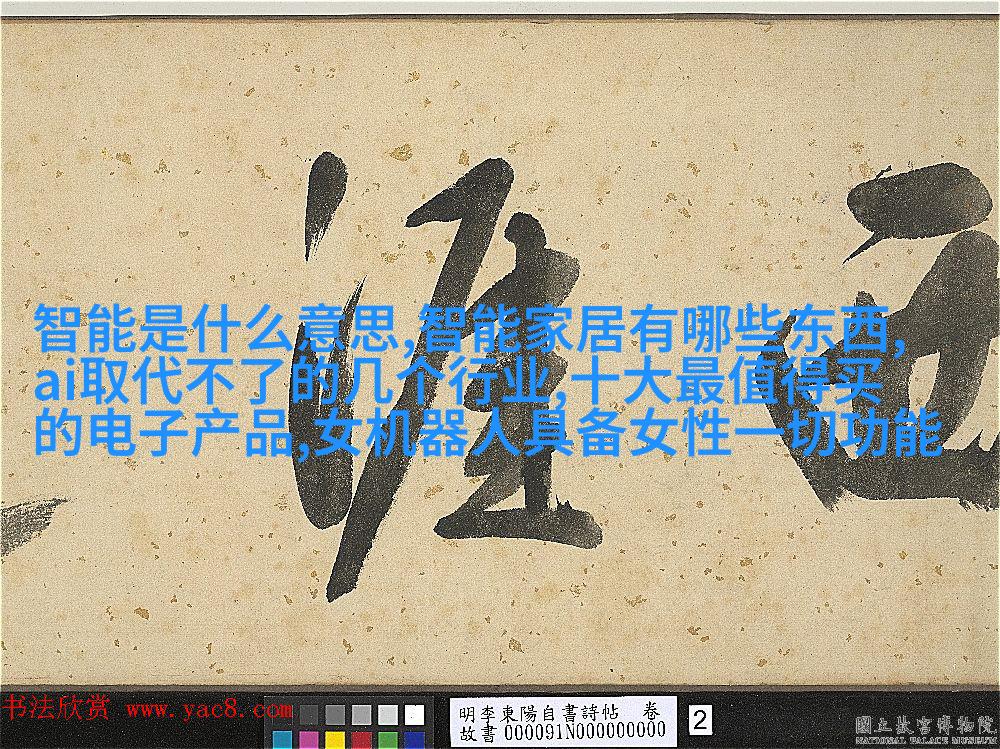 涯西
智能是什么意思,智能家居有哪些东西,
ai取代不了的几个行业,十大最值得买
的电子产品,女机器人具备女性一切功能
书法欣赏 www.yac8.com
明李東陽自書詩帖 卷
故書 000091N000000000
2
國立故宮博物院
NATIONAL PALACE MUSEUM